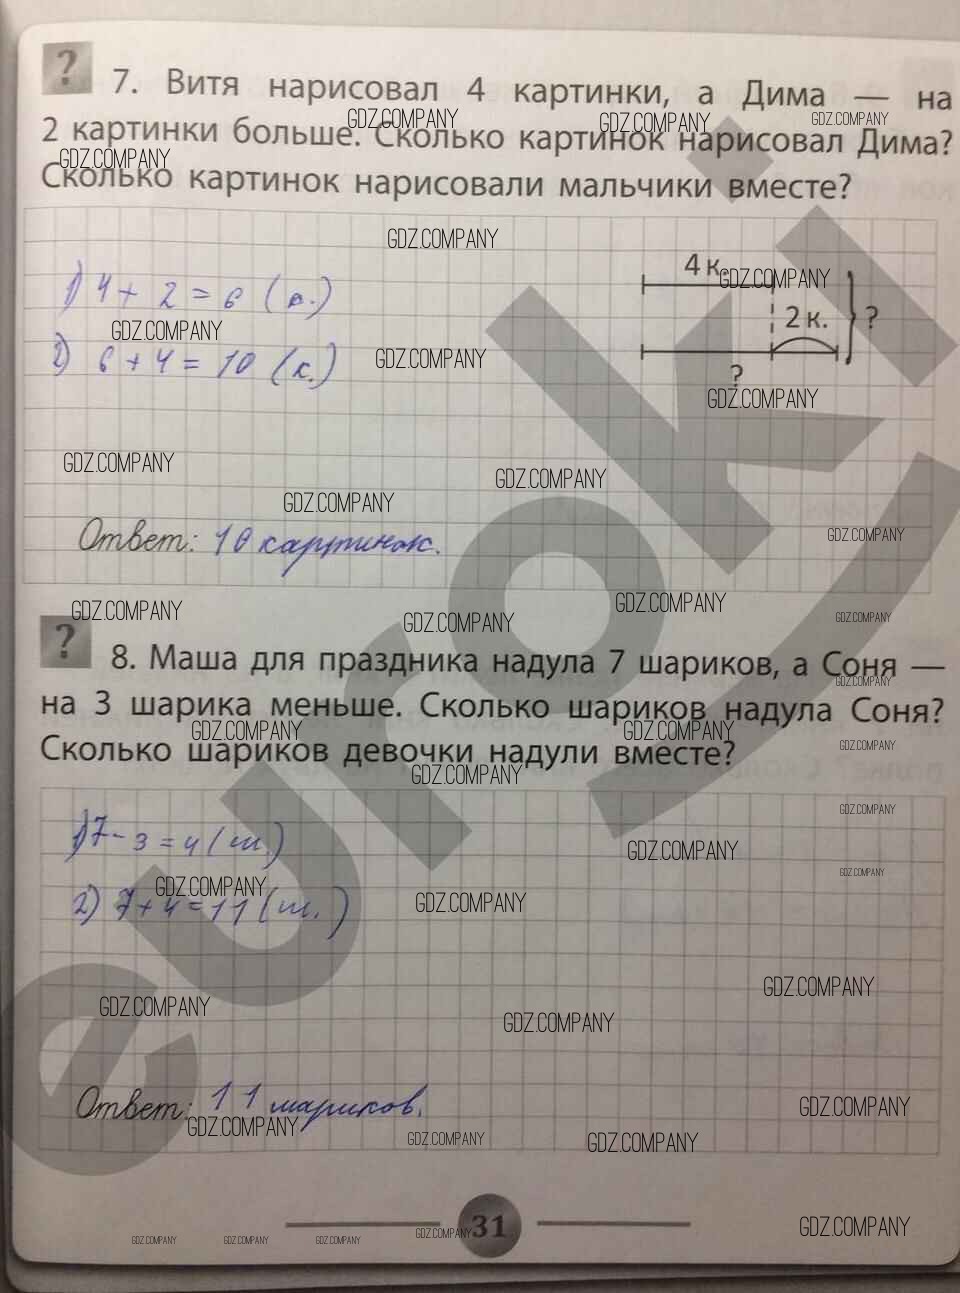 ?
7. Витя нарисовал 4 картинки, а Дима — на
2 картинки больше. Сколько картинок нарисовал Дима?
Сколько картинок нарисовали мальчики вместе?
1) 4 + 2 = 6 (к.)
2) 6 + 4 = 10 (к.)
4 к.
2 к.
?
?
Ответ: 10 картинок.
?
8. Маша для праздника надула 7 шариков, а Соня —
на 3 шарика меньше. Сколько шариков надула Соня?
Сколько шариков девочки надули вместе?
1) 7 - 3 = 4 (ш.)
2) 7 + 4 = 11 (ш.)
Ответ: 11 шариков.
31
euroki
GDZ.COMPANY